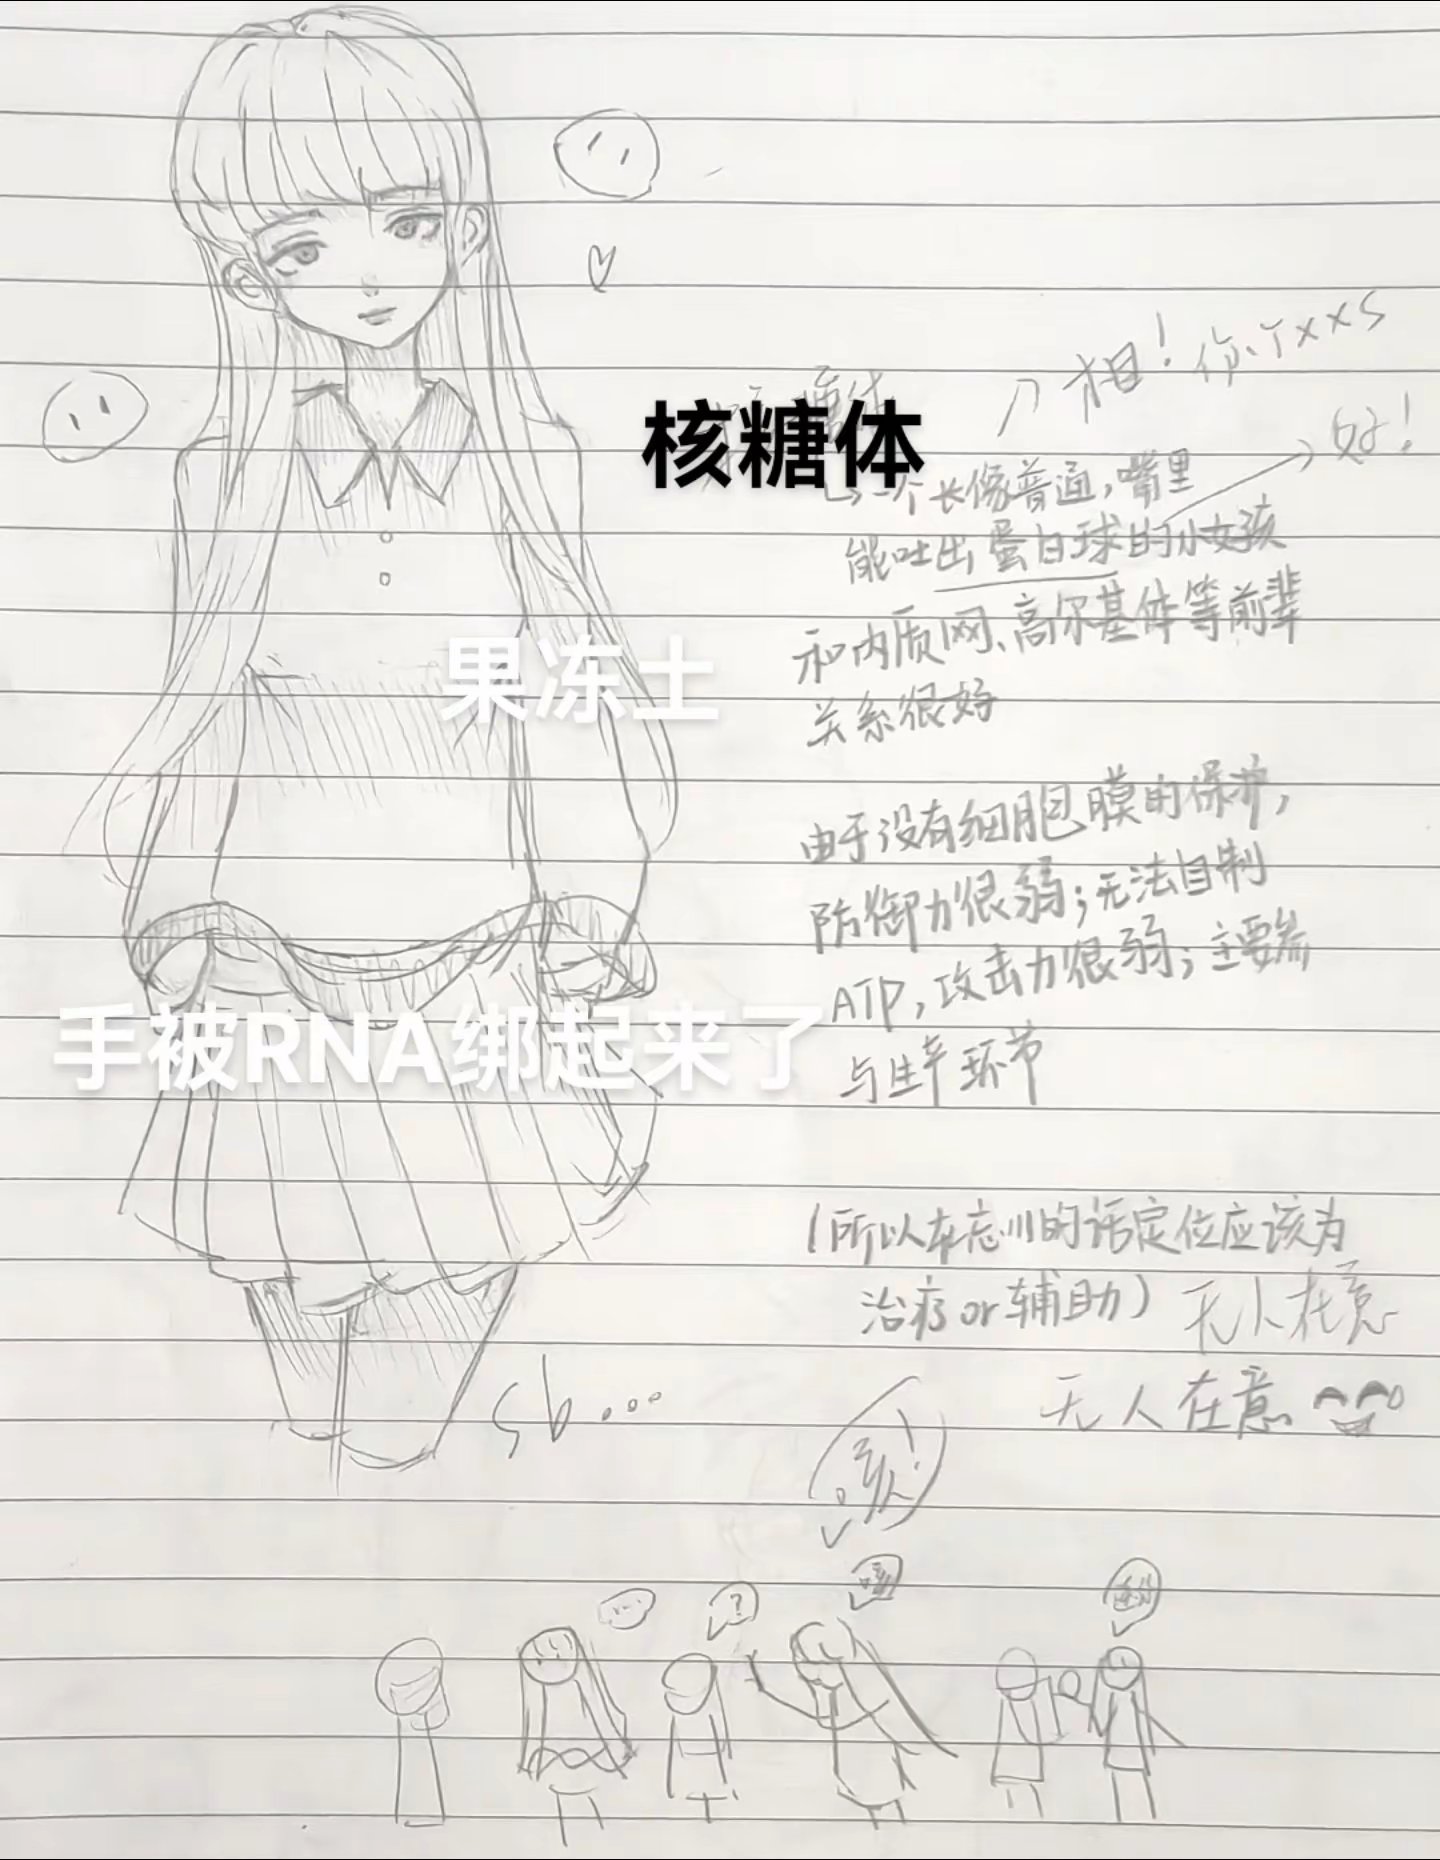 相！你丫xxs
核糖体
好！
一个长像普通，嘴里
能吐出蛋白球的小女孩
和内质网、高尔基体等前辈
关系很好
果冻士
由于没有细胞膜的保护，
防御力很弱；无法自制
ATP，攻击力很弱；主要参
与生产环节
手被RNA绑起来了
（所以在忘川的话定位应该为
治疗or辅助）无人在意
无人在意
sb...
...
?